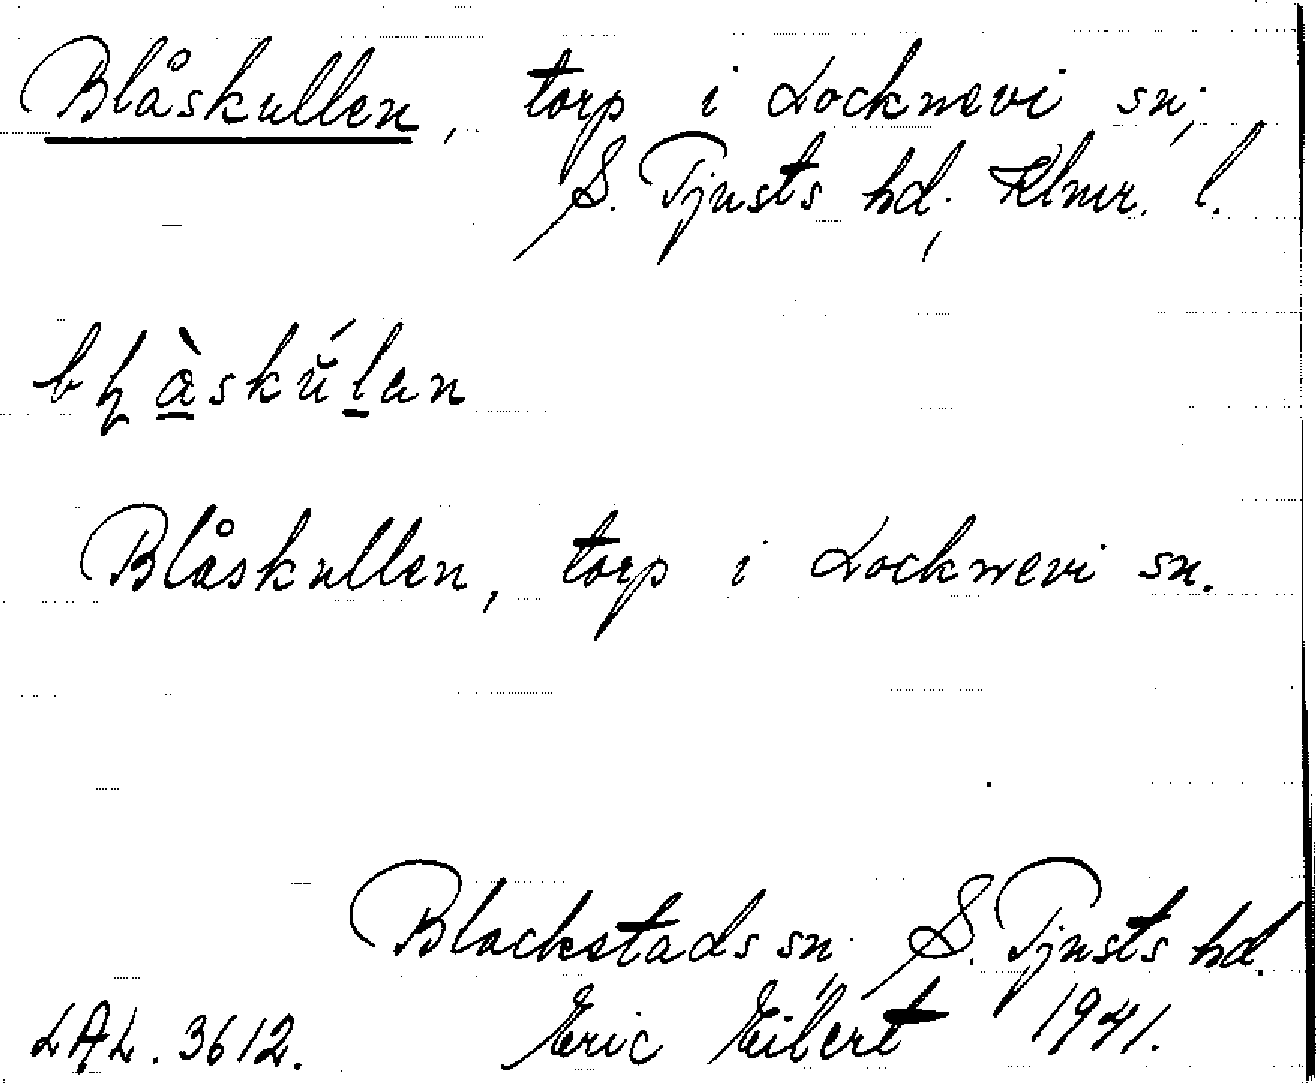 Blåskullen, torp i Locknevi sn.,
S. Tjusts hd., Klmr. l.
Blåskullen, torp i Locknevi sn.
Blackstads sn., S. Tjusts hd.
LAL. 3612. Eric Eilert 1941.